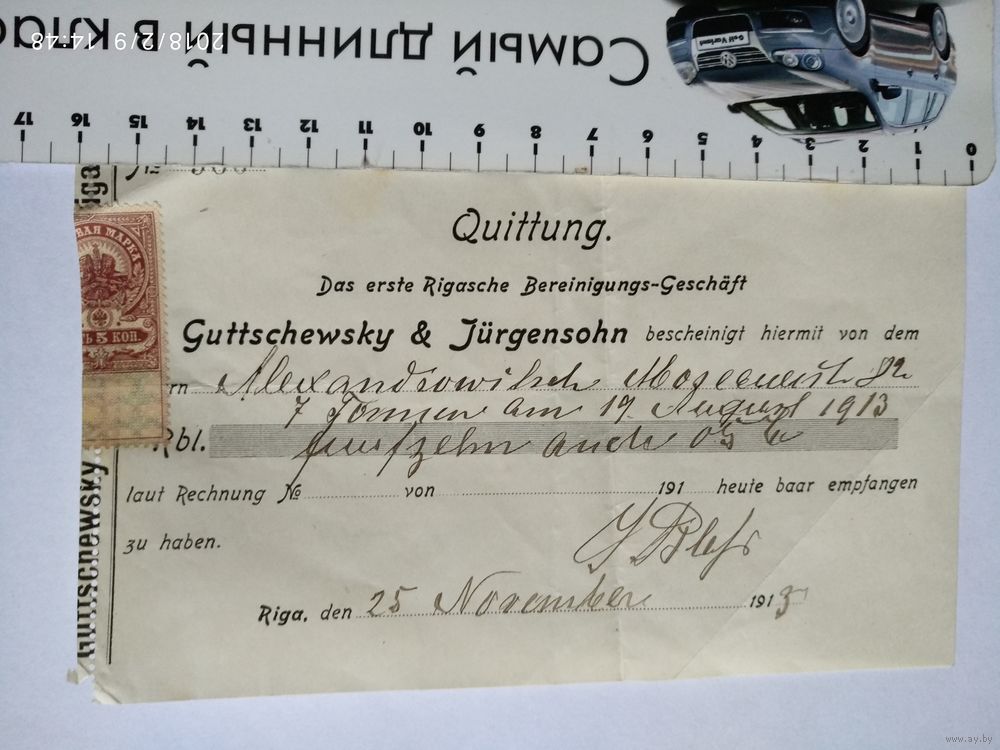 2018/2/9 14:48
Самый длинный в клас
Golf Variant
17 16 15 14 13 12 11 10 9 8 7 6 5 4 3 2 1 0
Quittung.
Das erste Rigasche Bereinigungs-Geschäft
Guttschewsky & Jürgensohn bescheinigt hiermit von dem
rn Alexandrowitsch 82
7 Tonnen am 19. August 1913
Rbl. fünfzehn 05
laut Rechnung № von 191 heute baar empfangen
zu haben.
Riga, den 25 November 1913
ВАЯ МАРКА
Ь 5 КОП.
iga
Guttschewsky
www.ay.by